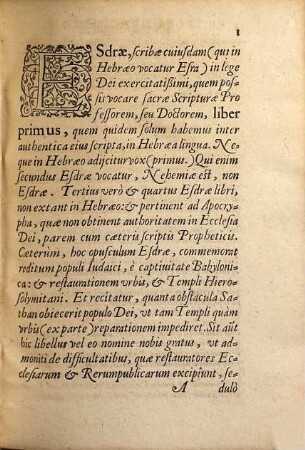 1
ESdræ, scribæ cuiusdam (qui in
Hebræo vocatur Esra) in lege
Dei exercitatißimi, quem pos-
sis vocare sacræ Scripturæ Pro
fessorem, seu Doctorem, liber
primus, quem quidem solum habemus inter
authentica eius scripta, in Hebræa lingua. Ne-
que in Hebræo adijcitur vox (primus.) Qui enim
secundus Esdræ vocatur, Nehemiæ est, non
Esdræ. Tertius verò & quartus Esdræ libri,
non extant in Hebræo: & pertinent ad Apocry-
pha, quæ non obtinent authoritatem in Ecclesia
Dei, parem cum cæteris scriptis Propheticis.
Cæterum, hoc opusculum Esdræ, commemorat
reditum populi Iudaici, è captiuitate Babyloni-
ca: & restaurationem vrbis, & Templi Hiero-
solymitani. Et recitatur, quanta obstacula Sa-
than obiecerit populo Dei, vt tam Templi quàm
vrbis (ex parte) reparationem impediret. Sit aūt
hic libellus vel eo nomine nobis gratus, vt ad-
moniti de difficultatibus, quæ restauratores Ec-
clesiarum & Rerumpublicarum excipiunt, se-
A dulò